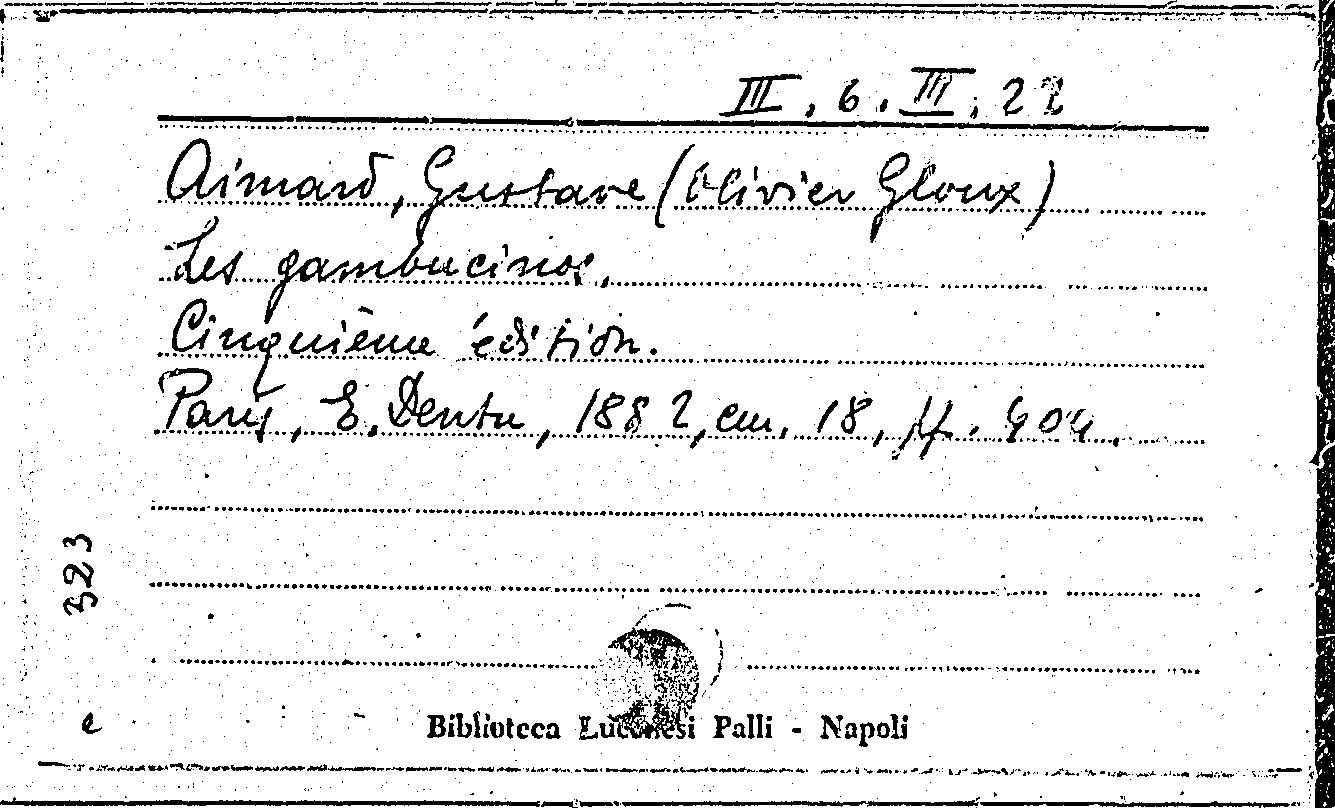 III. 6. III. 22
Aimard, Gustave (Olivier Gloux)
Les gambucinos,
Cinquième édition.
Paris, E. Dentu, 1882, cm. 18, pp. 404.
323
e
Biblioteca Lucchesi Palli - Napoli